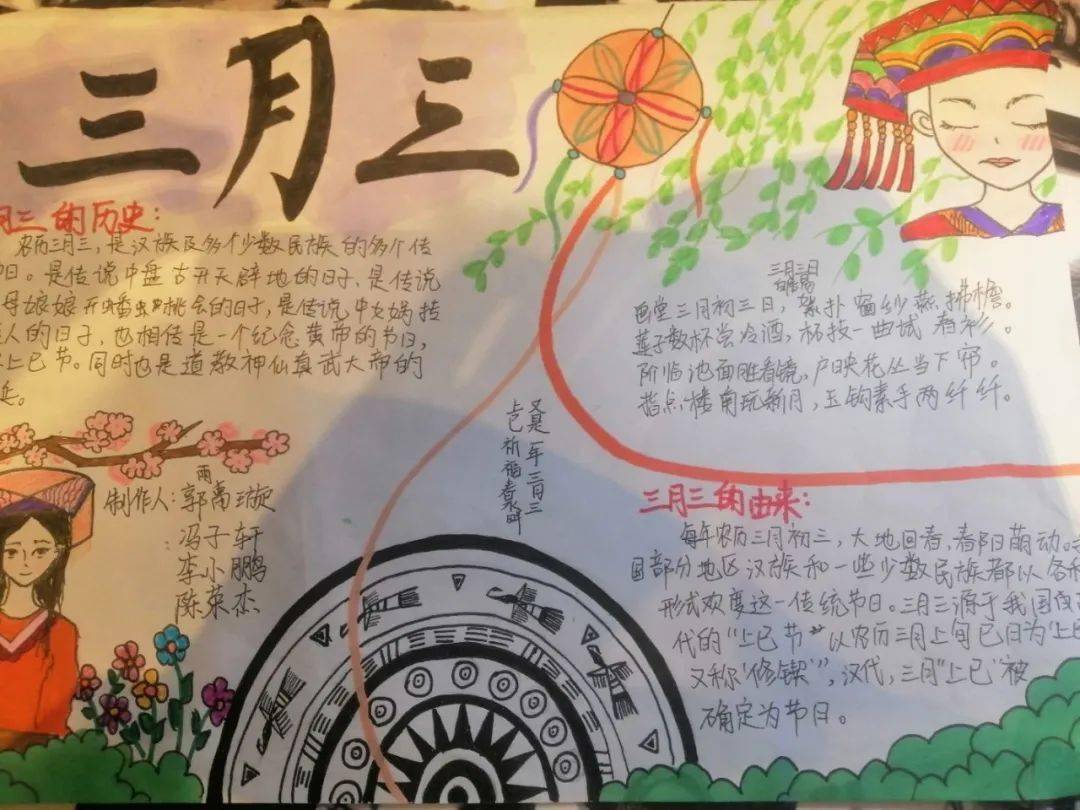 三月三
月三的历史：
农历三月三，是汉族及多个少数民族的多个传
日。是传说中盘古开天辟地的日子、是传说
母娘娘开蟠桃会的日子，是传说中女娲技
人的日子，也相传是一个纪念黄帝的节日，
上巳节。同时也是道教神仙真武大帝的
诞。
制作人：郭雨璇
冯子轩
李小鹏
陈荣杰
又是一年三月三
上巳祈福春畔
三月三日
画堂三月初三日，絮扑窗纱燕拂檐。
莲子数杯尝冷酒，柘枝一曲试春衫。
阶临池面胜看镜，户映花丛当下帘。
指点楼南玩新月，玉钩素手两纤纤。
三月三的由来：
每年农历三月初三，大地回春，春阳萌动。
国部分地区汉族和一些少数民族都以各种
形式欢度这一传统节日。三月三源于我国
代的“上巳节”以农历三月上旬巳日为‘上巳
又称‘修禊’”，汉代，三月“上巳’被
确定为节日。